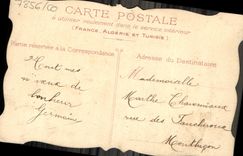 7856/60
CARTE POSTALE
à utiliser seulement dans le service intérieur
(FRANCE, ALGÉRIE ET TUNISIE)
Partie réservée à la Correspondance
Adresse du Destinataire
Tout mes
vœux de
bonheur
Germain
Mademoiselle
Marthe
rue des
Montluçon